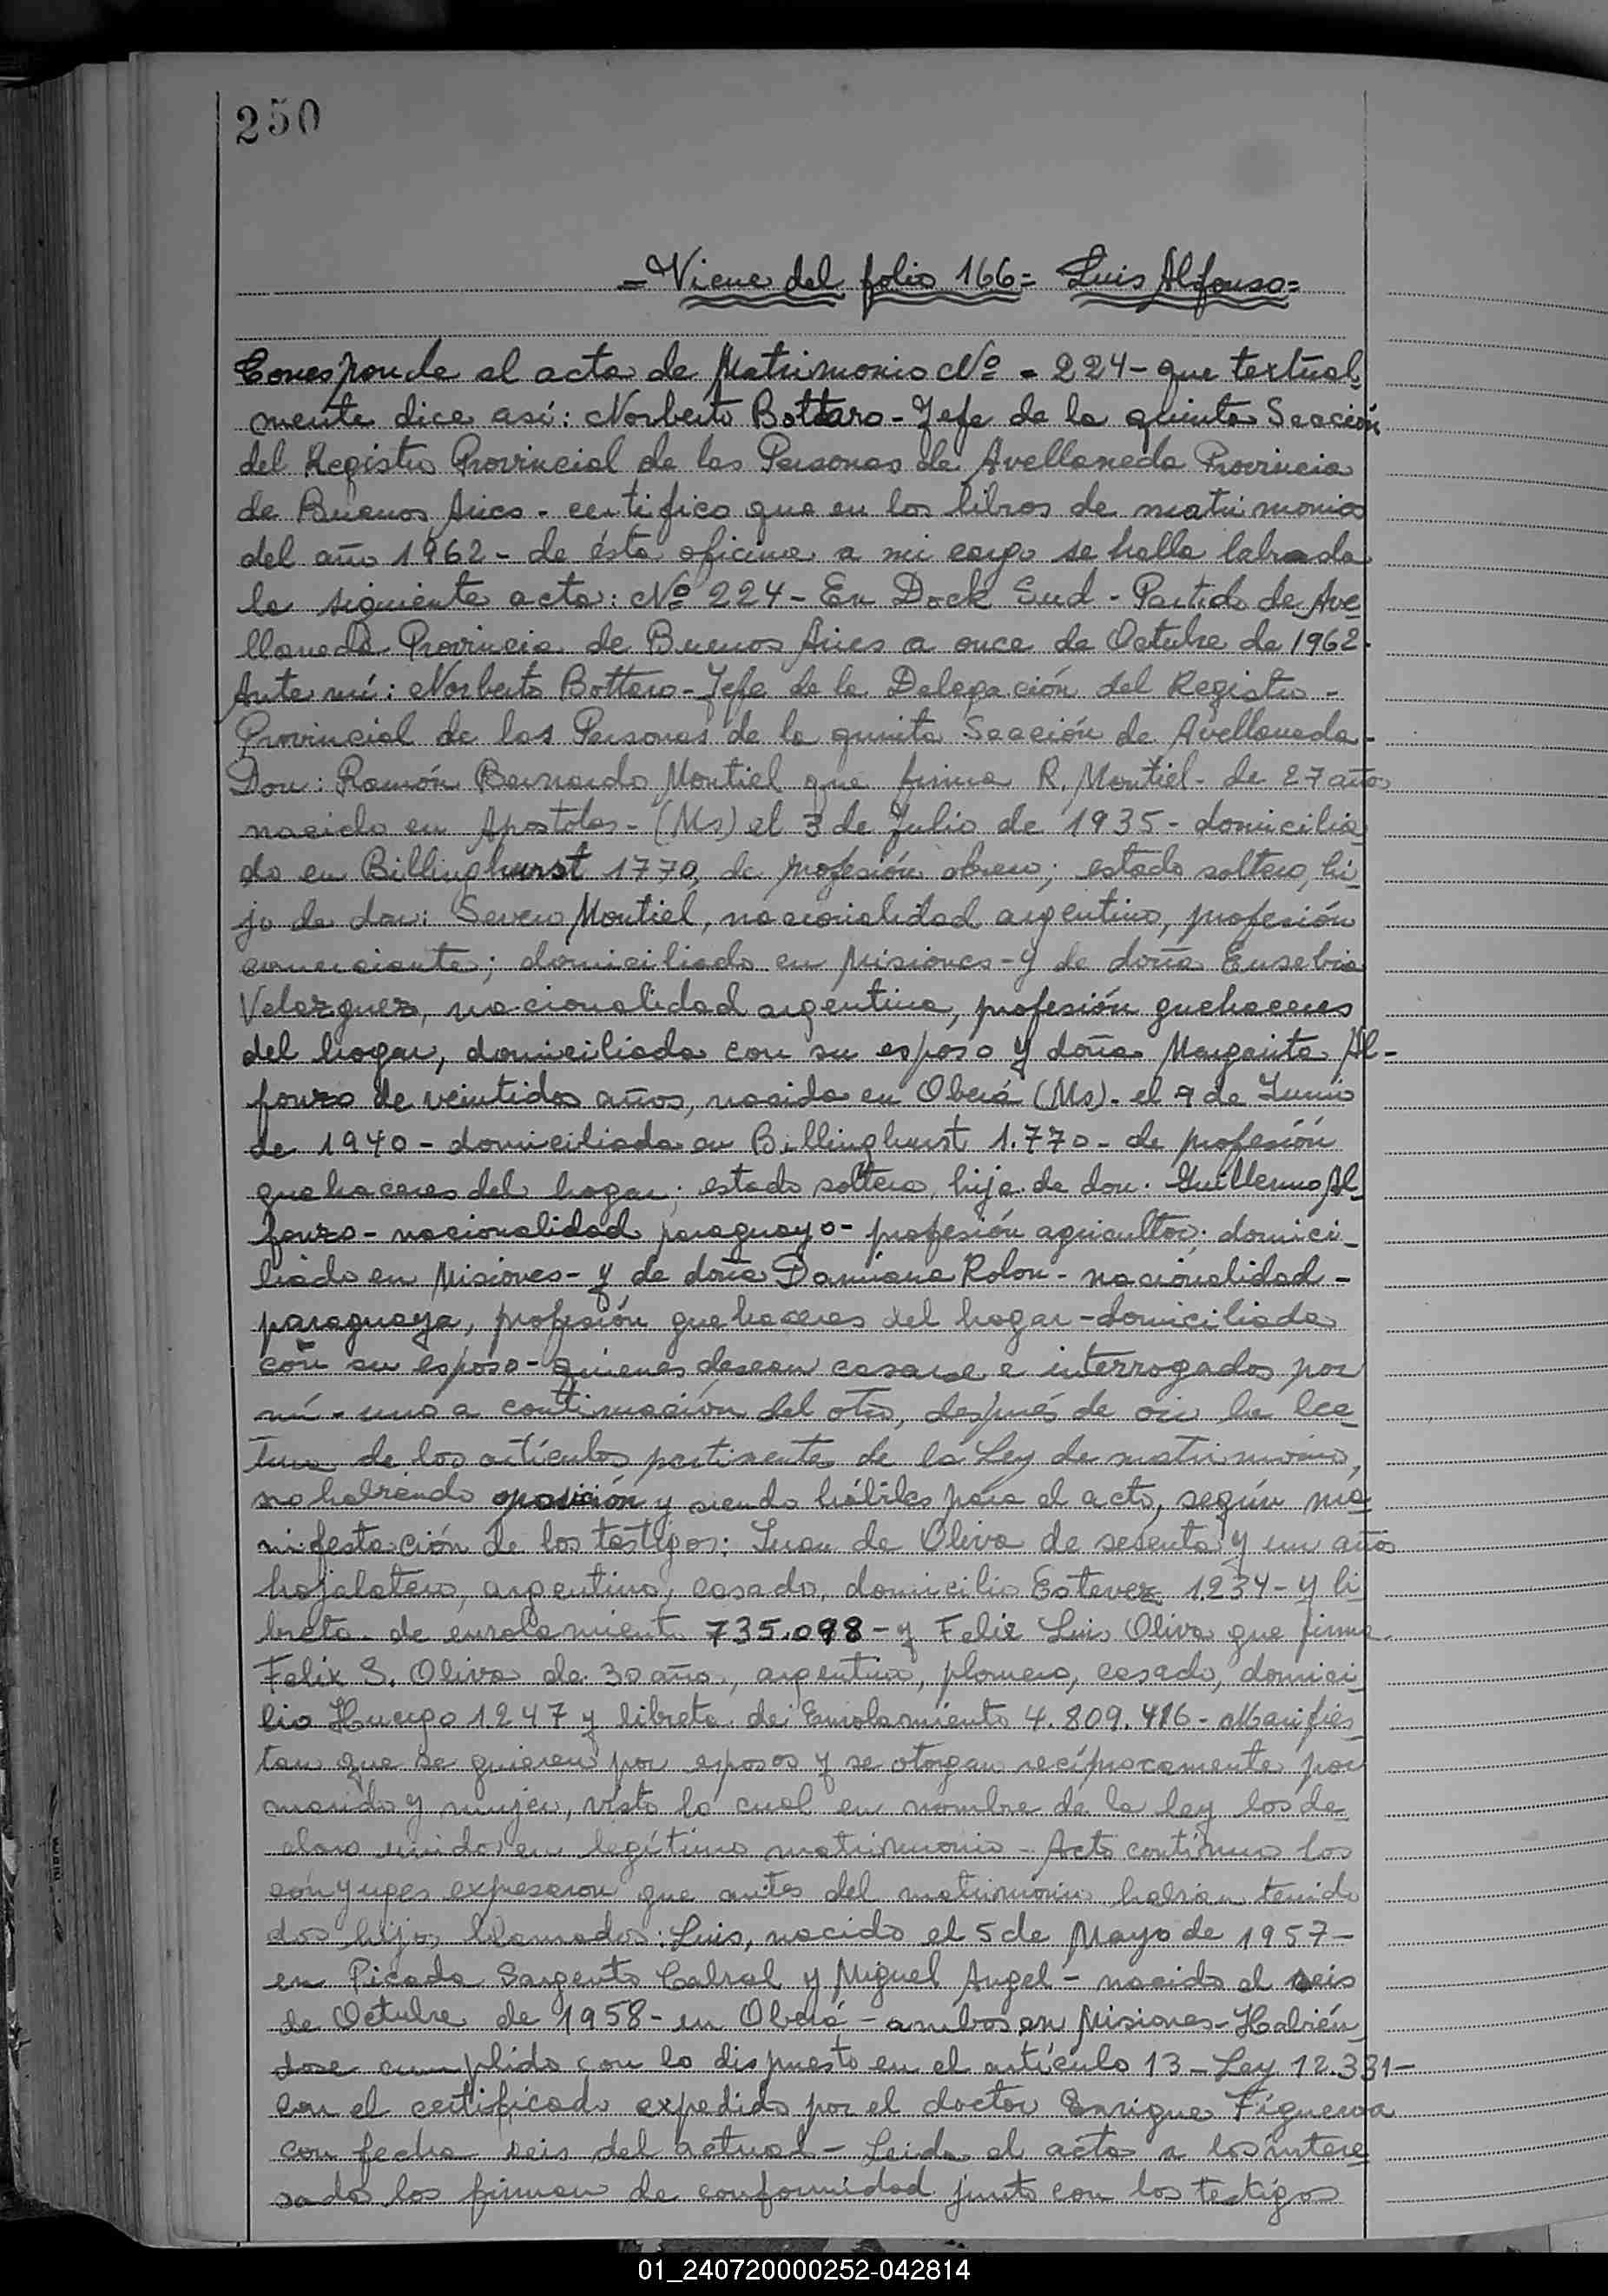 250
= Viene del folio 166 = Luis Alfonso =
Corresponde al acta de Matrimonio Nº = 224 - que textual-
mente dice así: Norberto Bottaro - Jefe de la quinta Sección
del Registro Provincial de las Personas de Avellaneda Provincia
de Buenos Aires - certifico que en los libros de matrimonios
del año 1962 - de ésta oficina a mi cargo se halla labrada
la siguiente acta: Nº 224 - En Dock Sud - Partido de Ave
llaneda Provincia de Buenos Aires a once de Octubre de 1962.
Ante mí: Norberto Bottaro - Jefe de la Delegación del Registro -
Provincial de las Personas de la quinta Sección de Avellaneda -
Don: Ramón Bernardo Montiel que firma R. Montiel - de 27 años
nacido en Apostoles - (Ms) el 3 de Julio de 1935 - domicilia
do en Billinghurst 1770, de profesión obrero; estado soltero, hi-
jo de don: Severo Montiel, nacionalidad argentino, profesión
comerciante; domiciliado en Misiones - y de doña Eusebia
Velazquez, nacionalidad argentina, profesión quehaceres
del hogar, domiciliada con su esposo y doña Margarita Al-
fonzo de veintidos años, nacida en Oberá (Ms). el 9 de Junio
de 1940 - domiciliada en Billinghurst 1.770 - de profesión
quehaceres del hogar; estado soltera, hija de don. Guillermo Al-
fonzo - nacionalidad paraguayo - profesión agricultor; domici-
liado en Misiones - y de doña Damiana Rolon - nacionalidad -
paraguaya, profesión quehaceres del hogar - domiciliada
con su esposo - quienes desean casarse e interrogados por
mí - uno a continuación del otro, después de oir la lec-
tura de los artículos pertinentes de la Ley de matrimonio,
no habiendo oposición y siendo hábiles para el acto, según ma-
nifestación de los testigos: Juan de Oliva de sesenta y un años
hojalatero, argentino, casado, domicilio Estevez 1.234 - y li
breta de enrolamiento 735.098 - y Felix Luis Oliva que firma
Felix S. Oliva de 30 años, argentino, plomero, casado, domici-
lio Huergo 1.247 y libreta de Enrolamiento 4.809.416 - Manifies-
tan que se quieren por esposos y se otorgan recíprocamente por
marido y mujer, visto lo cual en nombre de la ley los de-
claro unidos en legítimo matrimonio - Acto continuo los
cónyuges expresaron que antes del matrimonio habían tenido
dos hijos llamados: Luis, nacido el 5 de Mayo de 1957 -
en Picada Sargento Cabral y Miguel Angel - nacido el seis
de Octubre de 1958 - en Oberá - ambos en Misiones - Habién-
dose cumplido con lo dispuesto en el artículo 13 - Ley 12.331 -
con el certificado expedido por el doctor Enrique Figueroa
con fecha seis del actual - Leida el acta a los intere-
sados los firman de conformidad junto con los testigos
01_240720000252-042814